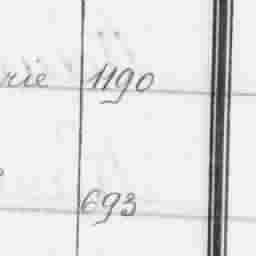 rie 1190
693